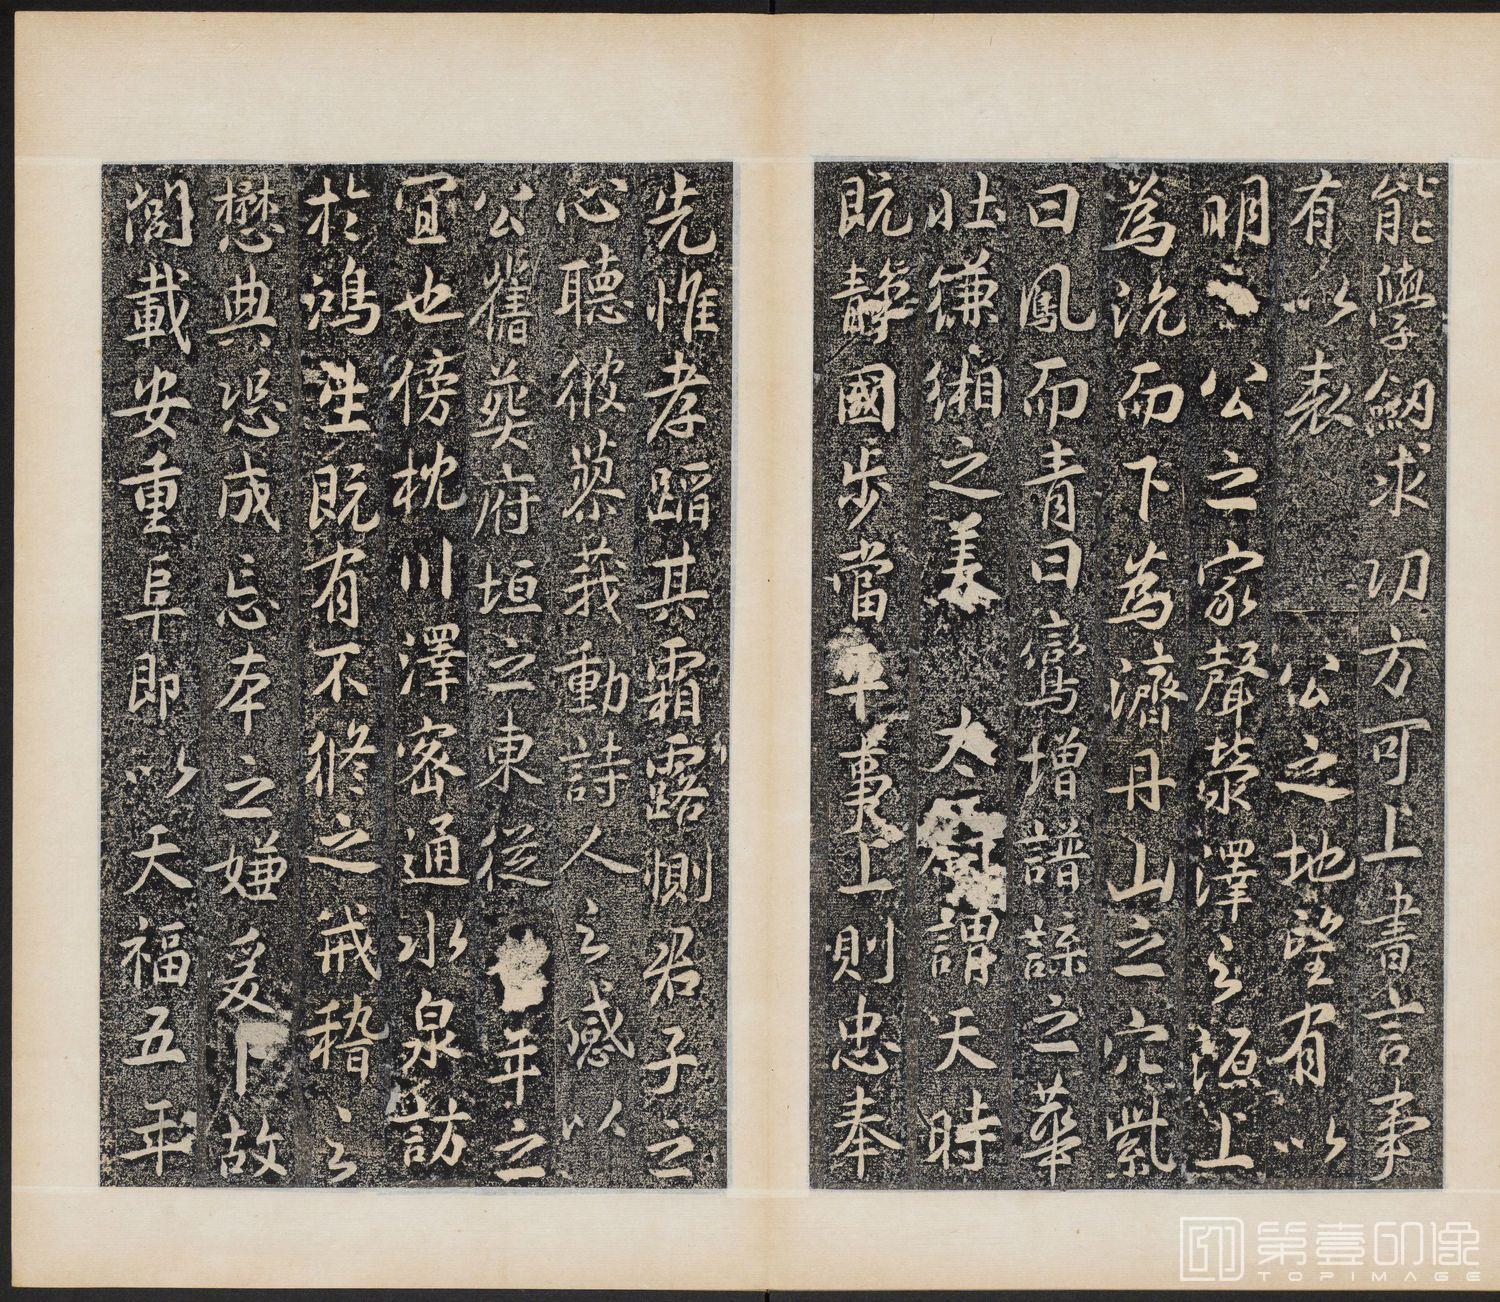 能學劒求功方可上書言事
有以製公之地望有以
明之公之家聲滎澤之源上
為沇而下為濟丹山之穴紫
曰鳳而青曰鸞增譜諜之華
壯縑緗之美太 謂天時
既静國步當平事上則忠奉
先惟孝蹈其霜露惻君子之
心聽彼蓼莪動詩人之感以
公舊葬府垣之東從 年之
宜也傍枕川澤密通水泉訪
於鴻生既有不修之戒稽之
懋典恐成忘本之嫌爰卜故
閣載安重阜即以天福五年
第壹印像
TOPIMAGE